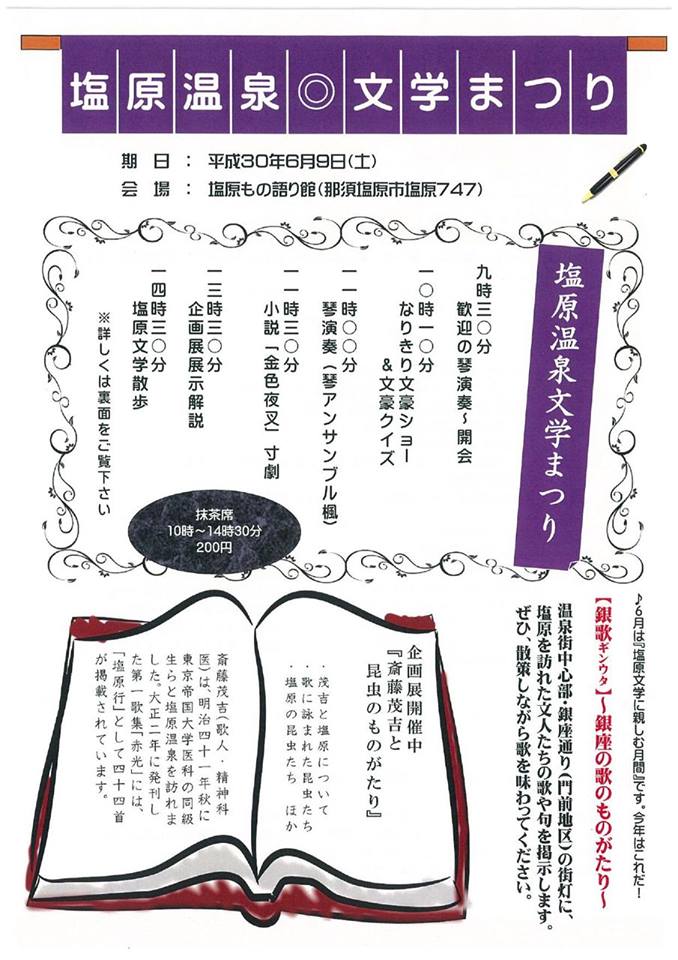 塩原温泉◎文学まつり
期 日 : 平成30年6月9日(土)
会 場 : 塩原もの語り館(那須塩原市塩原747)
塩原温泉文学まつり
九時三〇分
歓迎の琴演奏~開会
一〇時一〇分
なりきり文豪ショー
&文豪クイズ
一一時〇〇分
琴演奏(琴アンサンブル楓)
一一時三〇分
小説「金色夜叉」寸劇
一三時三〇分
企画展展示解説
一四時三〇分
塩原文学散歩
※詳しくは裏面をご覧下さい
抹茶席
10時~14時30分
200円
♪6月は『塩原文学に親しむ月間』です。今年はこれだ!
【銀歌ギンウタ】~銀座の歌のものがたり~
温泉街中心部・銀座通り(門前地区)の街灯に、
塩原を訪れた文人たちの歌や句を掲示します。
ぜひ、散策しながら歌を味わってください。
企画展開催中
『斎藤茂吉と
昆虫のものがたり』
・茂吉と塩原について
・歌に詠まれた昆虫たち
・塩原の昆虫たち ほか
斎藤茂吉(歌人・精神科
医)は、明治四十一年秋に
東京帝国大学医科の同級
生らと塩原温泉を訪れま
した。大正二年に発刊し
た第一歌集「赤光」には、
「塩原行」として四十四首
が掲載されています。